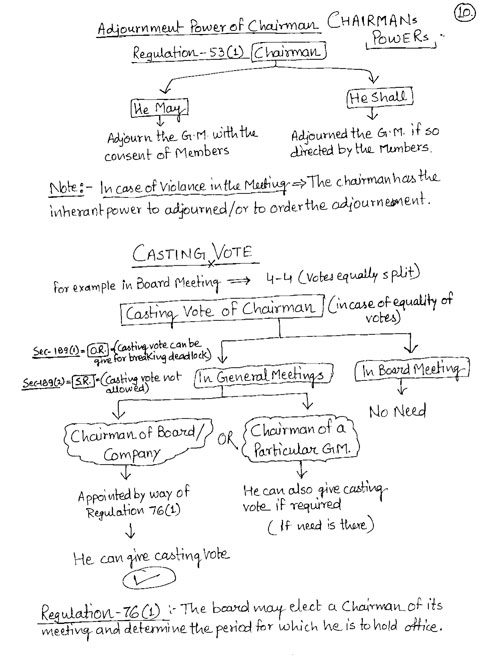 10.
Adjournment Power of Chairman CHAIRMANs POWERs
Regulation-53(1) Chairman
He May
He Shall
Adjourn the G.M. with the
consent of Members
Adjourned the G.M. if so
directed by the Members.
Note:- In case of Violance in the Meeting ⇒ The chairman has the
inherant power to adjourned/or to order the adjournement.
CASTING VOTE
for example in Board Meeting ⟹ 4-4 (Votes equally split)
Casting Vote of Chairman (in case of equality of
votes)
Sec-189(1) = O.R. = (Casting vote can be
give for breaking deadlock)
Sec-189(2) = S.R. = (Casting vote not
allowed)
In General Meetings
In Board Meeting
No Need
Chairman of Board/
Company
OR
Chairman of a
Particular G.M.
Appointed by way of
Regulation 76(1)
He can also give casting
vote if required
(If need is there)
He can give casting vote
Regulation-76(1) :- The board may elect a Chairman of its
meeting and determine the period for which he is to hold office.